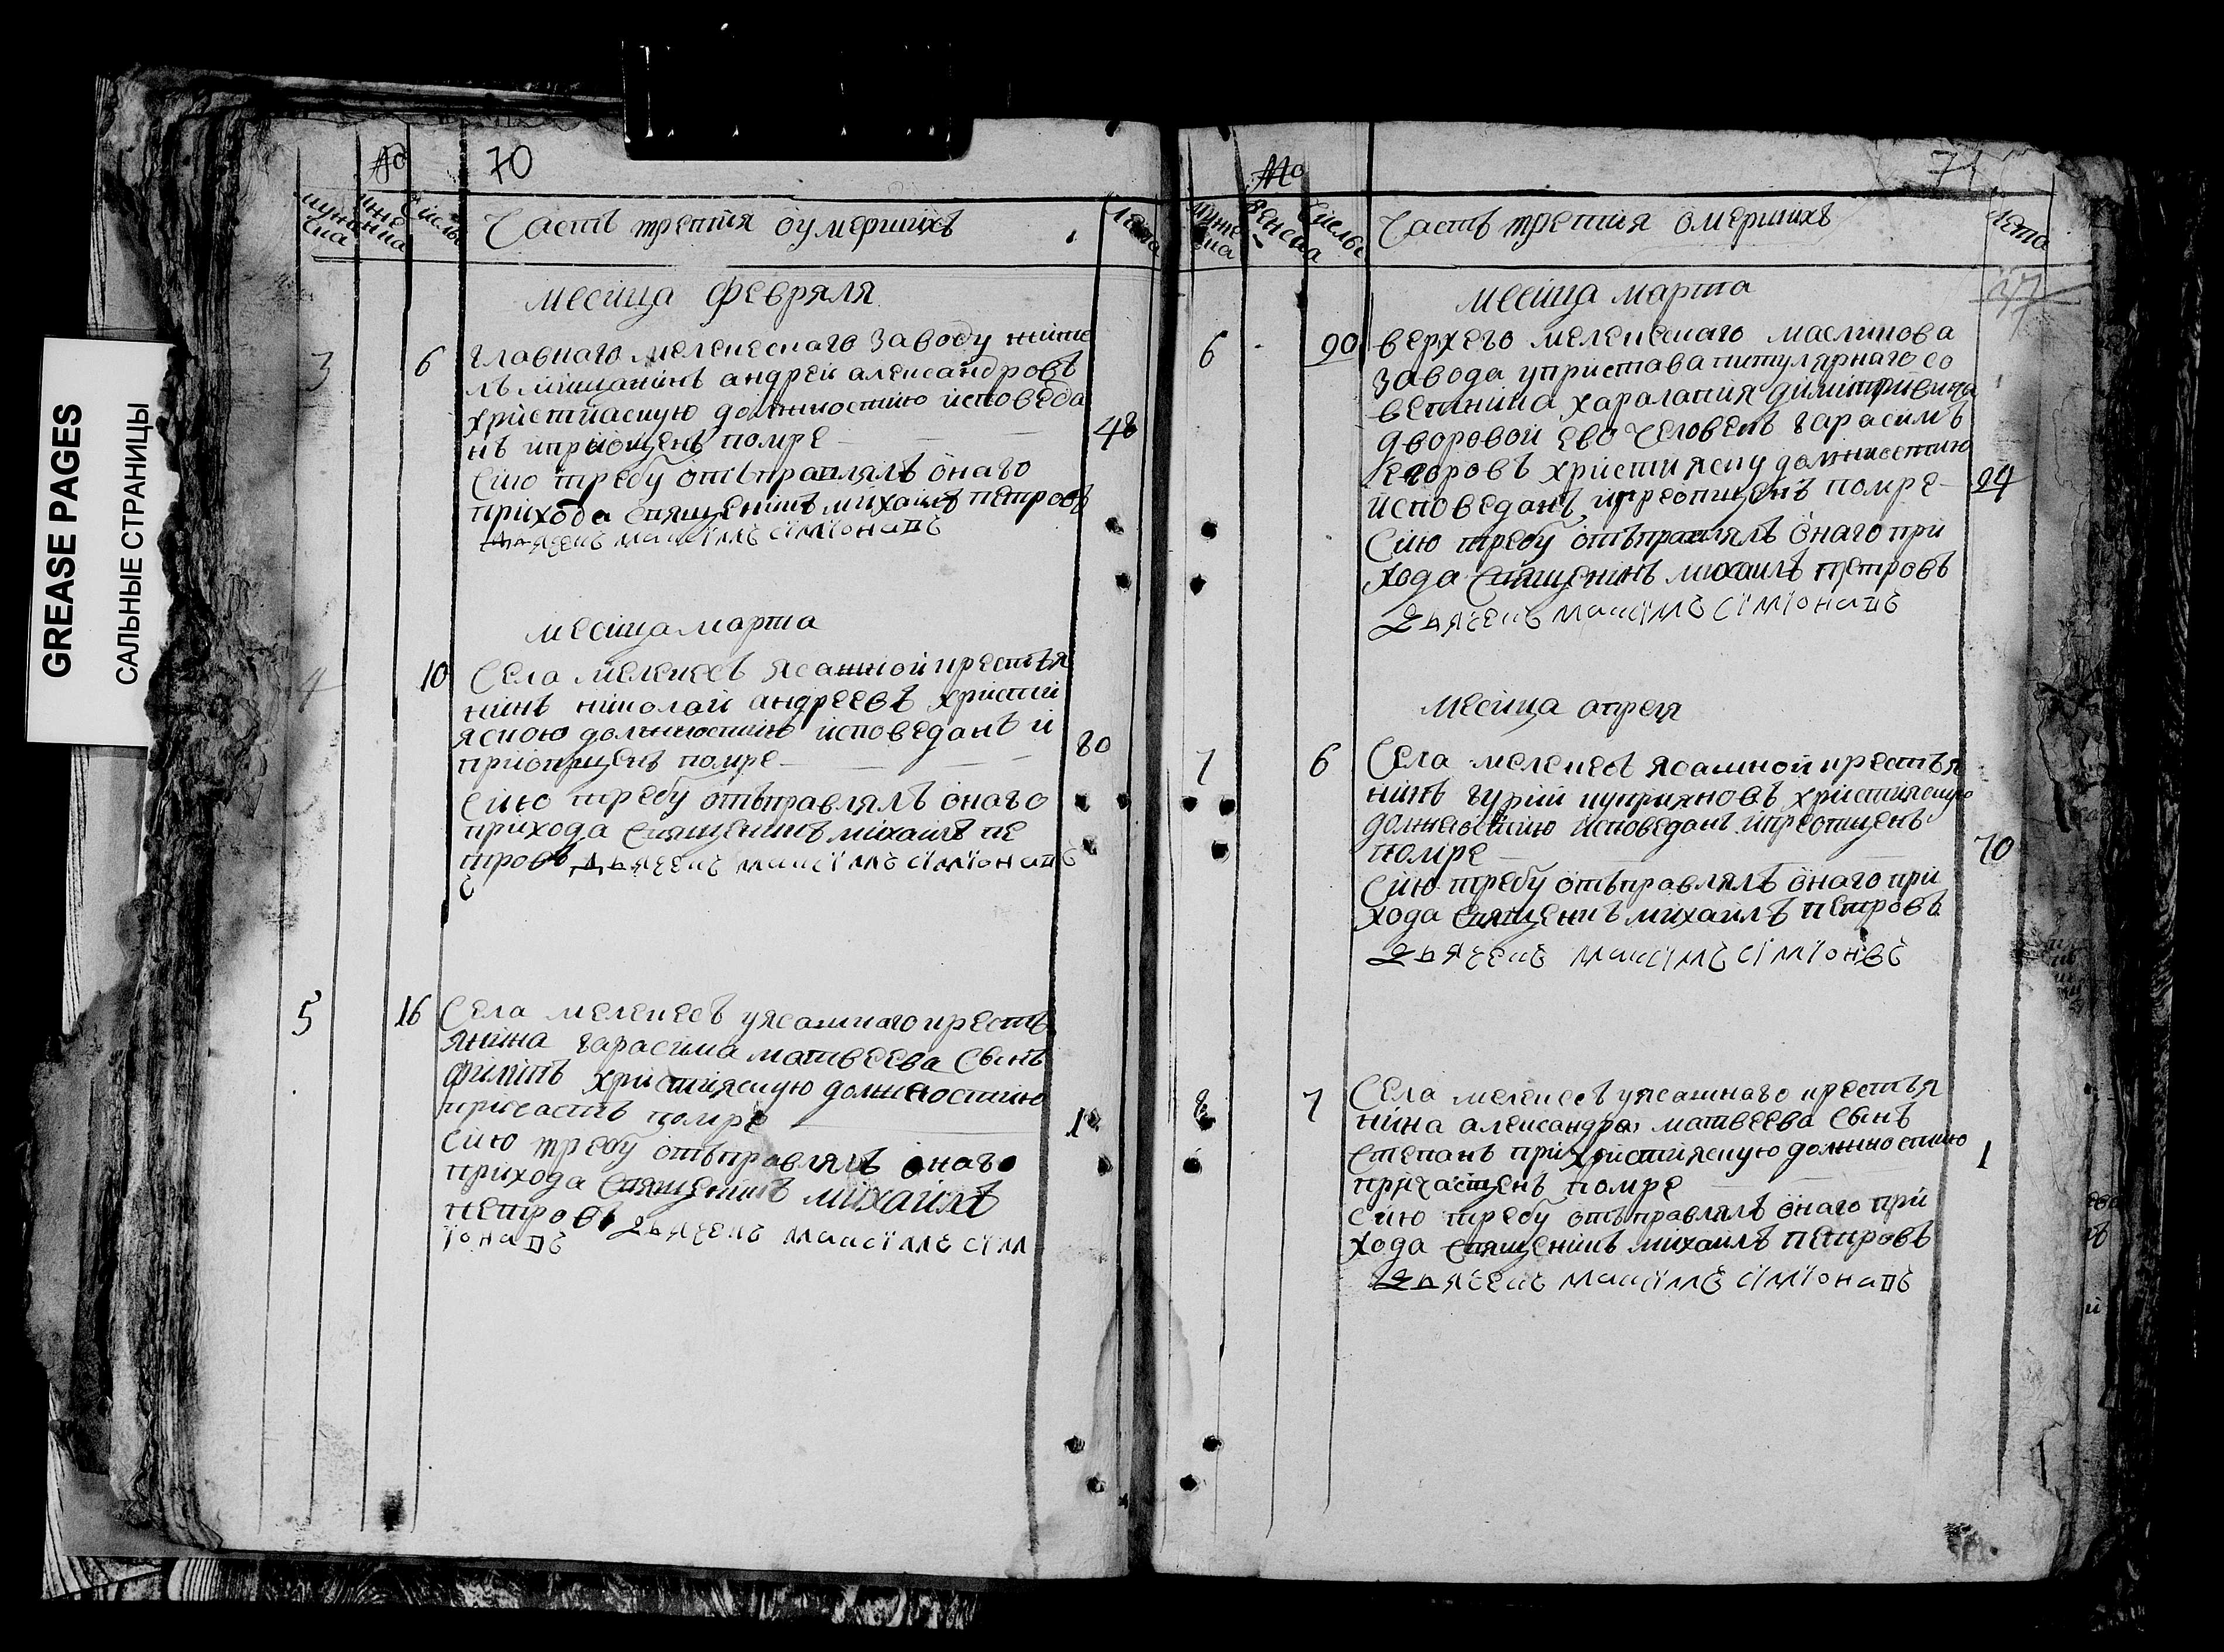 GREASE PAGES
САЛЬНЫЕ СТРАНИЦЫ
70
Часть третия оумершихъ
лета
месяца февряля
3
6
главнаго мелекескаго заводу жите
ль мищанинъ андрей александровъ
християскую должностию исповеда
нъ и приощенъ помре
48
Сию требу отъправлялъ онаго
прихода священикъ михаилъ петровъ
дьячекъ максїмъ сїмїонавъ
месяца марта
4
10
Села мелекесъ ясашной крестья
нинъ николай андреевъ христи
яскою должностию исповеданъ и
приопщенъ помре
80
Сию требу отъправлялъ онаго
прихода священикъ михаилъ пе
тровъ дьячекъ максїмъ сїмїонавъ
5
16
Села мелекесъ уясашнаго кресть
янина гарасима матвеева сынъ
филипъ християскую должностию
причастъ помре
1
Сию требу отъправлялъ онаго
прихода священикъ михаилъ
петровъ дьячекъ максїмъ сїм
їонавъ
71
Часть третия омершихъ
лета
месяца марта
6
90
верхего мелекескаго маслинова
завода упристава титулярнаго со
ветника харалапия димитривича
дворовой ево человекъ гарасимъ
егоровъ християску должностию
исповеданъ ипреопщенъ помре
94
Сию требу отъправлялъ онаго при
хода священикъ михаилъ петровъ
дьячекъ максїмъ сїмїонавъ
месяца апреля
7
6
Села мелекесъ ясашной крестья
нинъ гурий куприяновъ християскую
должностию исповеданъ ипреопщенъ
помре
70
Сию требу отъправлялъ онаго при
хода священикъ михаилъ петровъ
дьячекъ максїмъ сїмїонвъ
8
7
Села мелекесъ уясашнаго крестья
нина александра матвеева сынъ
степанъ при християскую должностию
причащенъ помре
1
Сию требу отъправлялъ онаго при
хода священикъ михаилъ петровъ
дьячекъ максїмъ сїмїонавъ